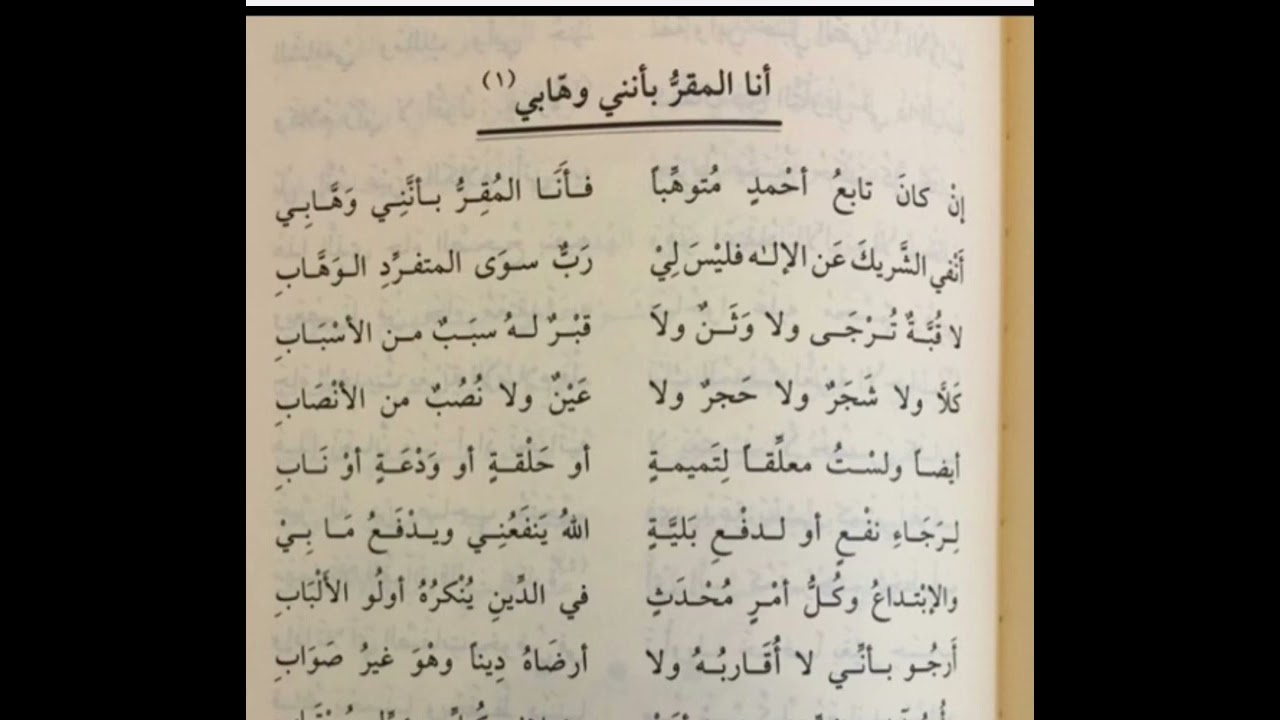 أنا المقرُّ بأنني وهّابي (١)
إنْ كانَ تابعُ أحْمدٍ مُتوهِّباً فـأنَـا المُقِـرُّ بـأنَّنِـي وَهَّـابِـي
أَنْفي الشَّريكَ عَن الإلٰه فليْسَ لِيْ رَبٌّ سـوَى المتفـرِّدِ الـوَهَّـابِ
لا قُبَّـةٌ تُـرْجَـى ولا وَثَـنٌ ولاَ قبْـرٌ لـهُ سبَـبٌ مـن الأسْبَـابِ
كَلاَّ ولا شَجَرٌ ولا حَجرٌ ولا عَيْنٌ ولا نُصُبٌ من الأنْصَابِ
أيضاً ولسْتُ معلِّقـاً لِتَميمـةٍ أو حَلْقـةٍ أو وَدْعَـةٍ أوْ نَـابِ
لِـرَجَـاءِ نفْـعٍ أو لـدفْـعِ بَليَّـةٍ اللهُ يَنفَعُنِـي ويـدْفَـعُ مَـا بِـيْ
والإبْتـداعُ وكُـلُّ أمْـرٍ مُحْـدَثٍ في الدِّينِ يُنْكرُهُ أولُو الأَلْبَابِ
أَرجُـو بـأنِّـي لا أُقَـاربُـهُ ولا أرضَاهُ دِيناً وهْوَ غيرُ صَوَابِ